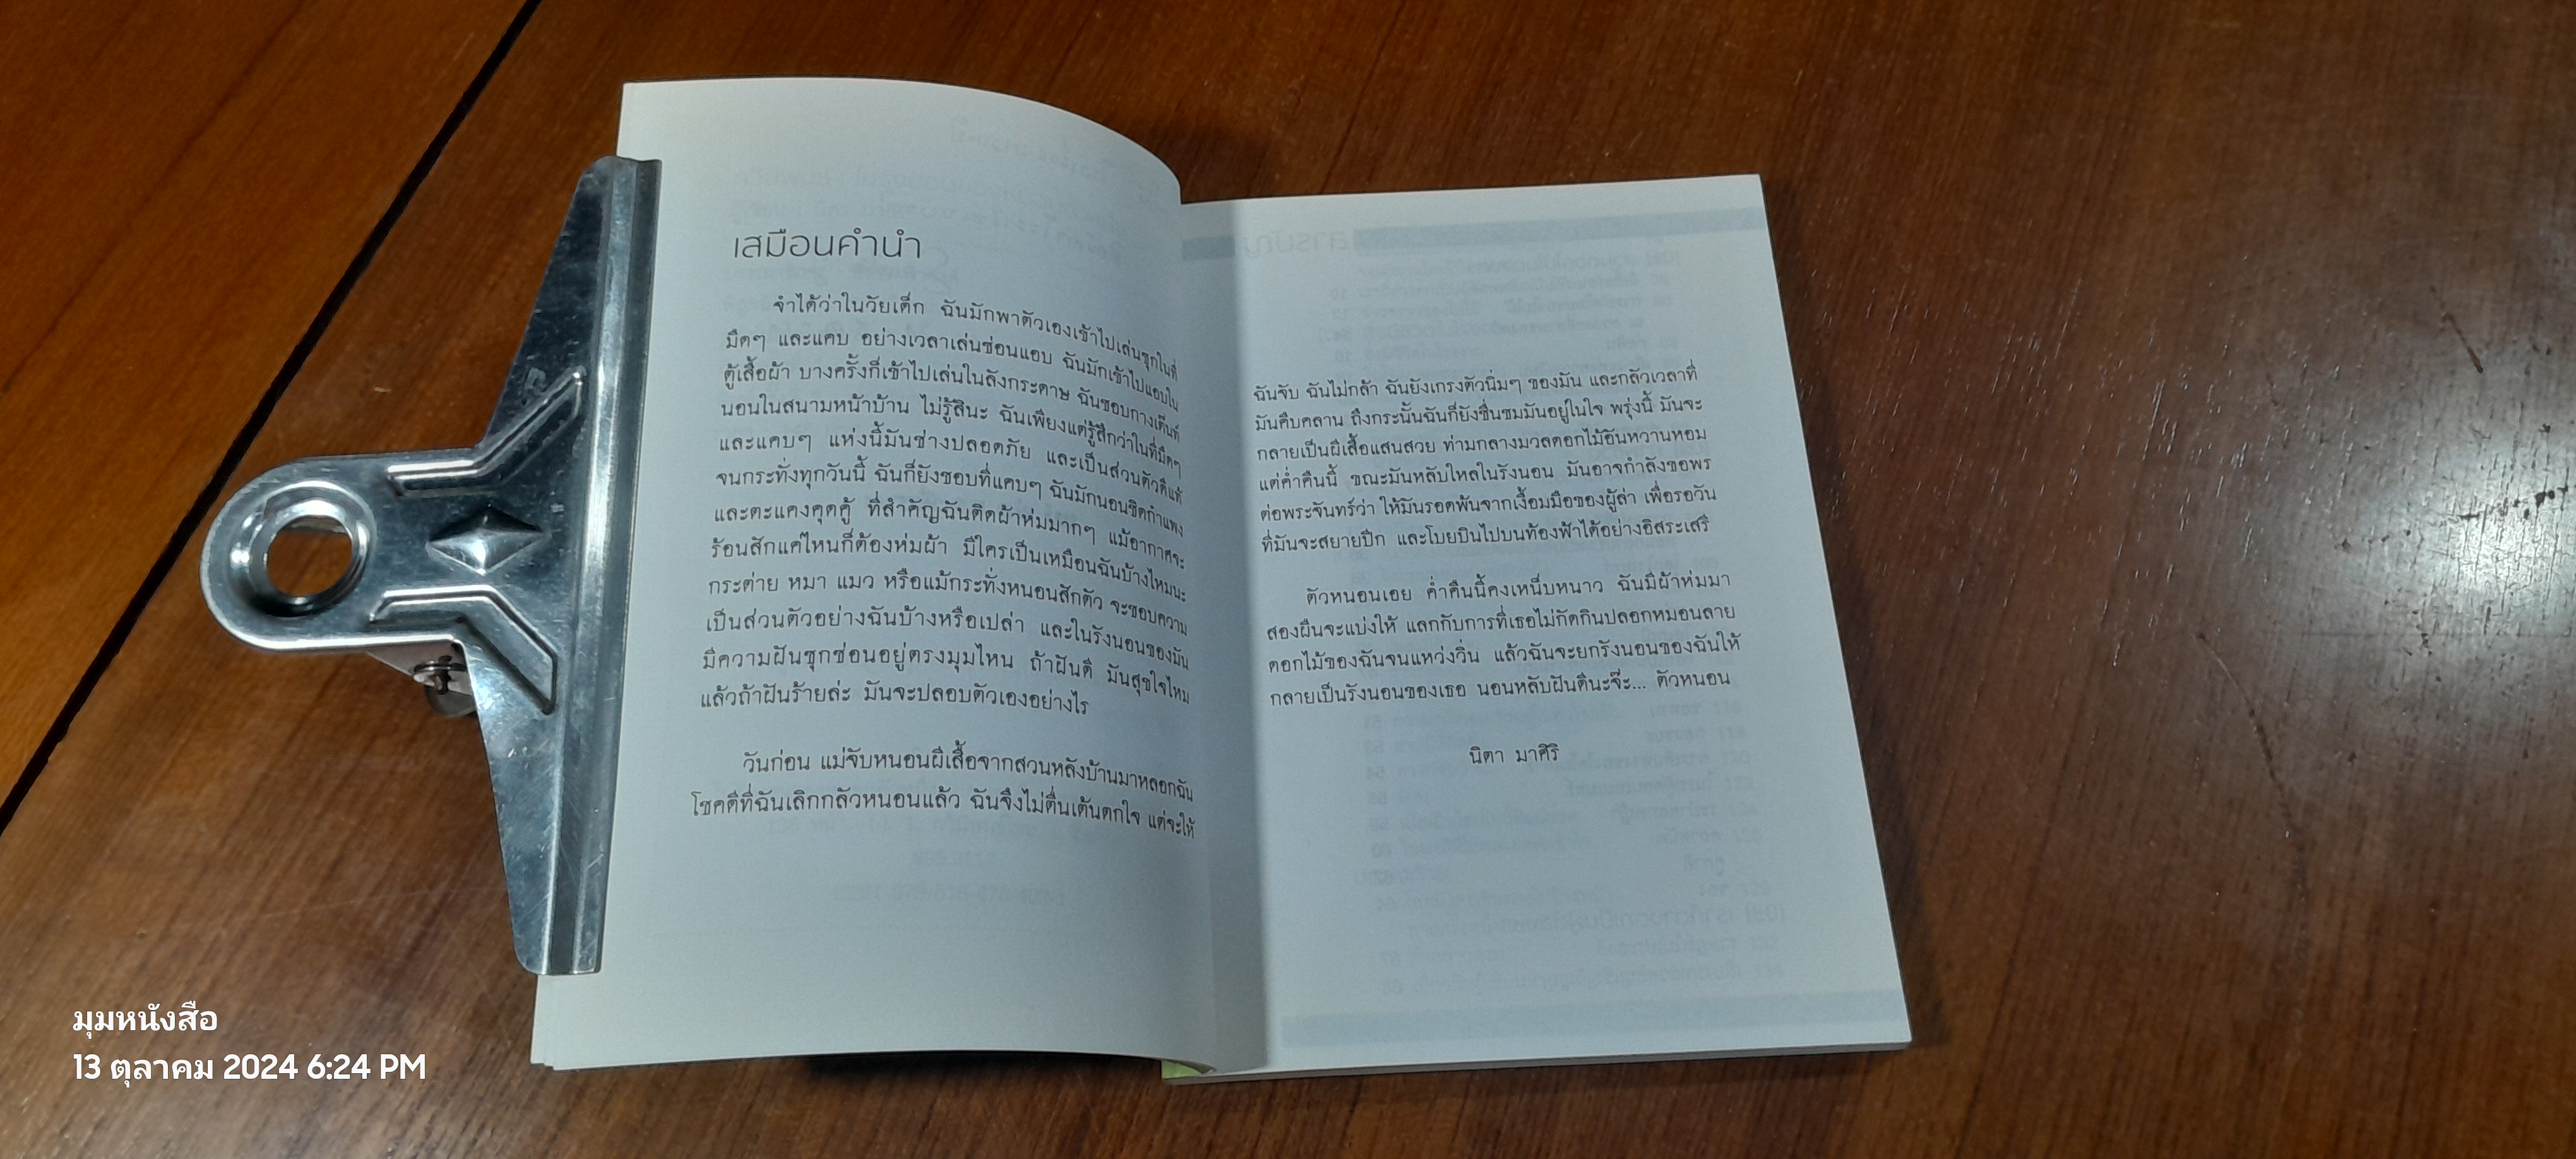 เสมือนคำนำ
จำได้ว่าในวัยเด็ก ฉันมักพาตัวเองเข้าไปเล่นซุกในที่
มืดๆ และแคบ อย่างเวลาเล่นซ่อนแอบ ฉันมักเข้าไปแอบใน
ตู้เสื้อผ้า บางครั้งก็เข้าไปเล่นในลังกระดาษ ฉันชอบกางเต็นท์
นอนในสนามหน้าบ้าน ไม่รู้สินะ ฉันเพียงแต่รู้สึกว่าในที่มืดๆ
และแคบๆ แห่งนี้มันช่างปลอดภัย และเป็นส่วนตัวดีแท้
จนกระทั่งทุกวันนี้ ฉันก็ยังชอบที่แคบๆ ฉันมักนอนชิดกำแพง
และตะแคงคุดคู้ ที่สำคัญฉันติดผ้าห่มมากๆ แม้อากาศจะ
ร้อนสักแค่ไหนก็ต้องห่มผ้า มีใครเป็นเหมือนฉันบ้างไหมนะ
กระต่าย หมา แมว หรือแม้กระทั่งหนอนสักตัว จะชอบความ
เป็นส่วนตัวอย่างฉันบ้างหรือเปล่า และในรังนอนของมัน
มีความฝันซุกซ่อนอยู่ตรงมุมไหน ถ้าฝันดี มันสุขใจไหม
แล้วถ้าฝันร้ายล่ะ มันจะปลอบตัวเองอย่างไร
วันก่อน แม่จับหนอนผีเสื้อจากสวนหลังบ้านมาหลอกฉัน
โชคดีที่ฉันเลิกกลัวหนอนแล้ว ฉันจึงไม่ตื่นเต้นตกใจ แต่จะให้
ฉันจับ ฉันไม่กล้า ฉันยังเกรงตัวนิ่มๆ ของมัน และกลัวเวลาที่
มันคืบคลาน ถึงกระนั้นฉันก็ยังชื่นชมมันอยู่ในใจ พรุ่งนี้ มันจะ
กลายเป็นผีเสื้อแสนสวย ท่ามกลางมวลดอกไม้อันหวานหอม
แต่ค่ำคืนนี้ ขณะมันหลับใหลในรังนอน มันอาจกำลังขอพร
ต่อพระจันทร์ว่า ให้มันรอดพ้นจากเงื้อมมือของผู้ล่า เพื่อรอวัน
ที่มันจะสยายปีก และโบยบินไปบนท้องฟ้าได้อย่างอิสระเสรี
ตัวหนอนเอย ค่ำคืนนี้คงเหน็บหนาว ฉันมีผ้าห่มมา
สองผืนจะแบ่งให้ แลกกับการที่เธอไม่กัดกินปลอกหมอนลาย
ดอกไม้ของฉันจนแหว่งวิ่น แล้วฉันจะยกรังนอนของฉันให้
กลายเป็นรังนอนของเธอ นอนหลับฝันดีนะจ๊ะ... ตัวหนอน
นิตา มาศิริ
มุมหนังสือ
13 ตุลาคม 2024 6:24 PM